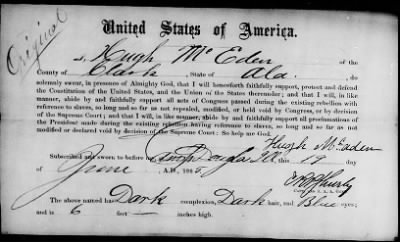 Original
United States of America.
I, Hugh McEden
County of Clark, State of Ala. do
solemnly swear, in presence of Almighty God, that I will henceforth faithfully support, protect and defend
the Constitution of the United States, and the Union of the States thereunder; and that I will, in like
manner, abide by and faithfully support all acts of Congress passed during the existing rebellion with
reference to slaves, so long and so far as not repealed, modified, or held void by Congress, or by decision of
the Supreme Court; and that I will, in like manner, abide by and faithfully support all proclamations of
the President made during the existing rebellion having reference to slaves, so long and so far as not
modified or declared void by decision of the Supreme Court: So help me God.
Hugh McEaden
Subscribed and sworn to before me, this 19 day
of June, A.D., 1865.
The above named has Dark complexion, Dark hair, and Blue eyes;
and is 6 feet — inches high.